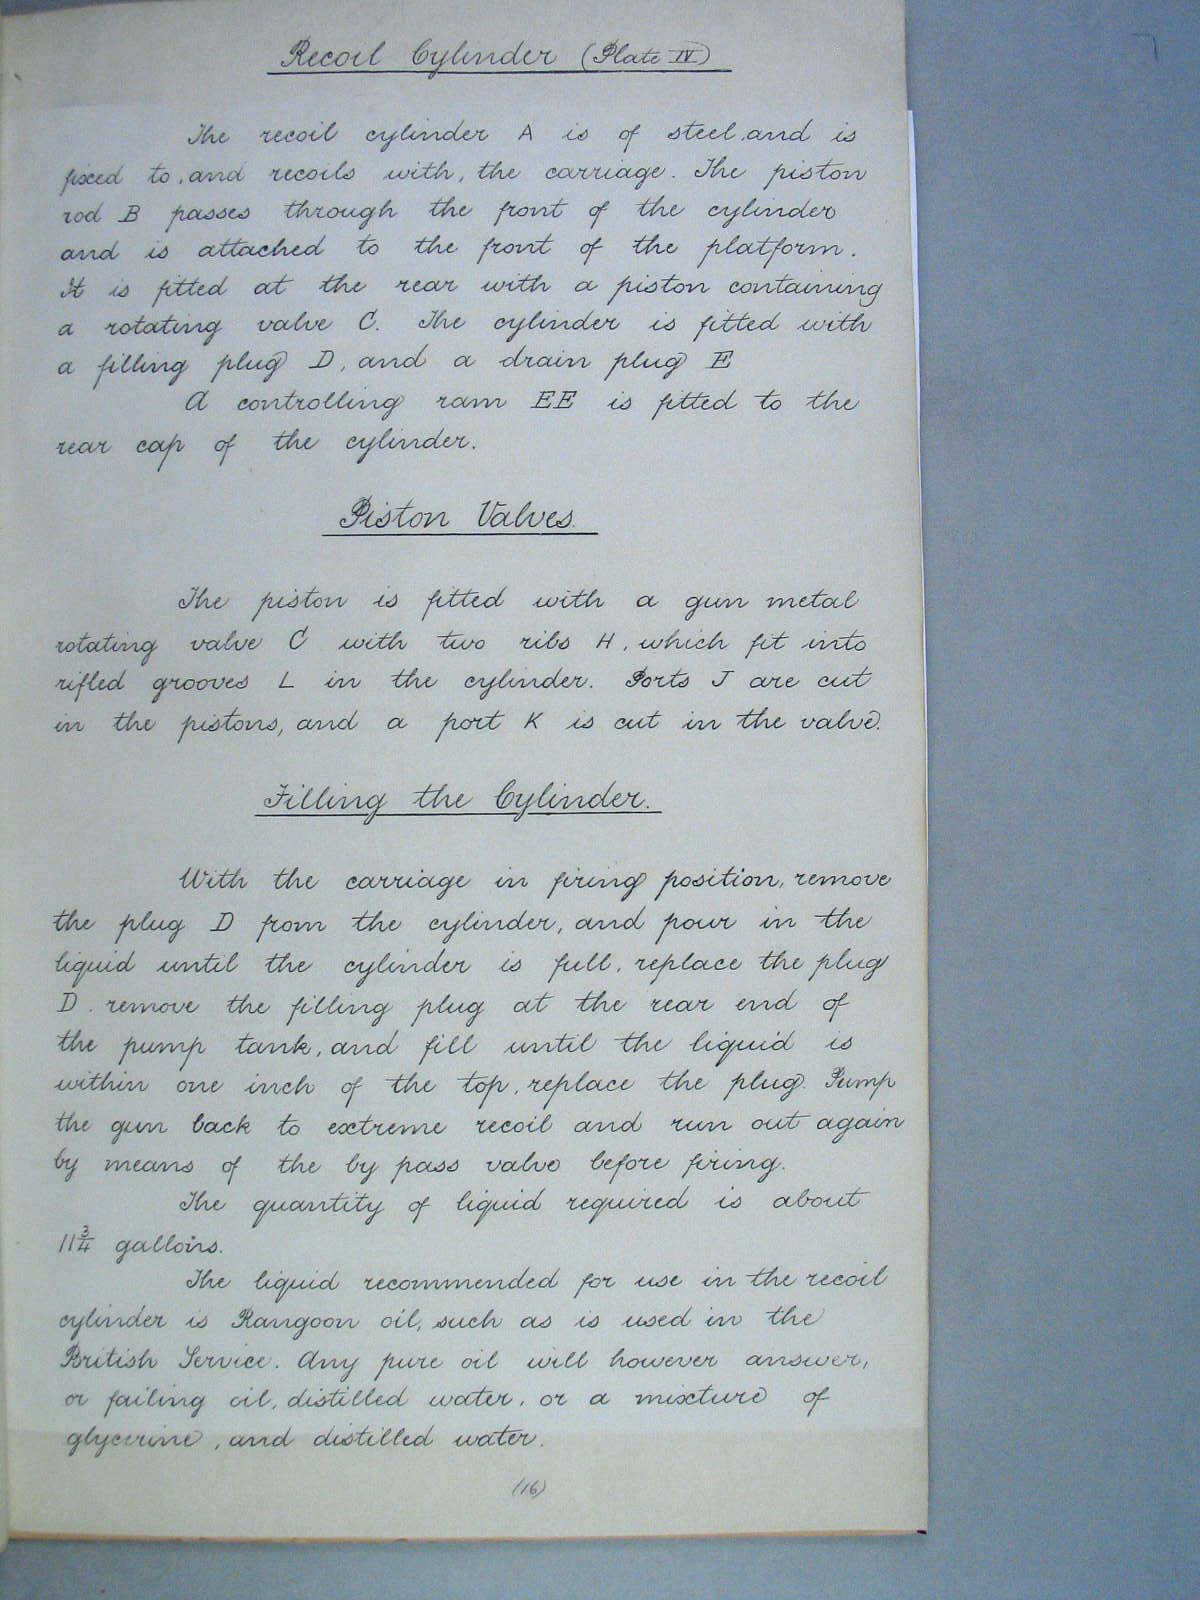 Recoil Cylinder (Plate IV)
The recoil cylinder A is of steel and is
fixed to, and recoils with, the carriage. The piston
rod B passes through the front of the cylinder
and is attached to the front of the platform.
It is fitted at the rear with a piston containing
a rotating valve C. The cylinder is fitted with
a filling plug D, and a drain plug E
A controlling ram EE is fitted to the
rear cap of the cylinder.
Piston Valves.
The piston is fitted with a gun metal
rotating valve C with two ribs H, which fit into
rifled grooves L in the cylinder. Ports J are cut
in the pistons, and a port K is cut in the valve.
Filling the Cylinder.
With the carriage in firing position, remove
the plug D from the cylinder, and pour in the
liquid until the cylinder is full, replace the plug
D. remove the filling plug at the rear end of
the pump tank, and fill until the liquid is
within one inch of the top, replace the plug. Pump
the gun back to extreme recoil and run out again
by means of the by pass valve before firing.
The quantity of liquid required is about
11 3/4 gallons.
The liquid recommended for use in the recoil
cylinder is Rangoon oil, such as is used in the
British Service. Any pure oil will however answer,
or failing oil, distilled water, or a mixture of
glycerine, and distilled water.
(16)